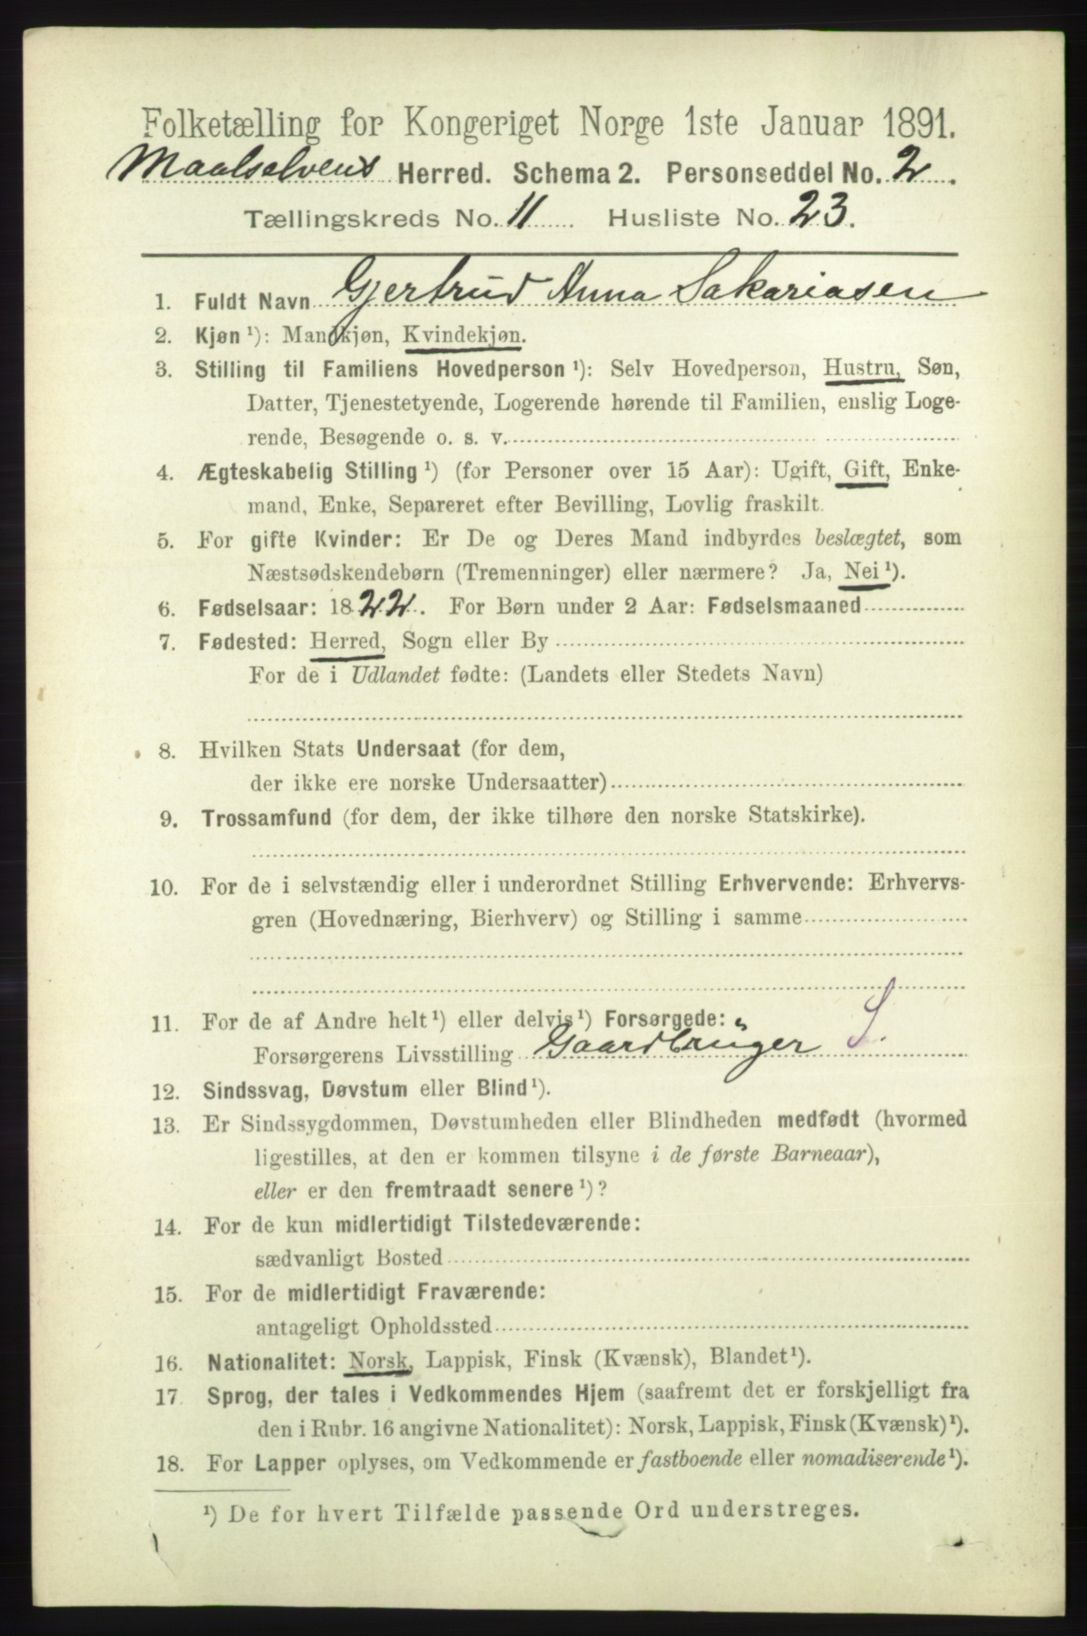 Folketælling for Kongeriget Norge 1ste Januar 1891.
Maalselvens Herred. Schema 2. Personseddel No. 2.
Tællingskreds No. 11 Husliste No. 23.
1. Fuldt Navn Gjertrud Anna Sakariasen
2. Kjøn ¹): Mandkjøn, Kvindekjøn.
3. Stilling til Familiens Hovedperson ¹): Selv Hovedperson, Hustru, Søn,
Datter, Tjenestetyende, Logerende hørende til Familien, enslig Loge-
rende, Besøgende o. s. v.
4. Ægteskabelig Stilling ¹) (for Personer over 15 Aar): Ugift, Gift, Enke-
mand, Enke, Separeret efter Bevilling, Lovlig fraskilt.
5. For gifte Kvinder: Er De og Deres Mand indbyrdes beslægtet, som
Næstsødskendebørn (Tremenninger) eller nærmere? Ja, Nei ¹).
6. Fødselsaar: 1822. For Børn under 2 Aar: Fødselsmaaned
7. Fødested: Herred, Sogn eller By
For de i Udlandet fødte: (Landets eller Stedets Navn)
8. Hvilken Stats Undersaat (for dem,
der ikke ere norske Undersaatter)
9. Trossamfund (for dem, der ikke tilhøre den norske Statskirke).
10. For de i selvstændig eller i underordnet Stilling Erhvervende: Erhvervs-
gren (Hovednæring, Bierhverv) og Stilling i samme
11. For de af Andre helt ¹) eller delvis ¹) Forsørgede:
Forsørgerens Livsstilling Gaardbruger S.
12. Sindssvag, Døvstum eller Blind ¹).
13. Er Sindssygdommen, Døvstumheden eller Blindheden medfødt (hvormed
ligestilles, at den er kommen tilsyne i de første Barneaar),
eller er den fremtraadt senere ¹)?
14. For de kun midlertidigt Tilstedeværende:
sædvanligt Bosted
15. For de midlertidigt Fraværende:
antageligt Opholdssted
16. Nationalitet: Norsk, Lappisk, Finsk (Kvænsk), Blandet ¹).
17 Sprog, der tales i Vedkommendes Hjem (saafremt det er forskjelligt fra
den i Rubr. 16 angivne Nationalitet): Norsk, Lappisk, Finsk (Kvænsk) ¹).
18. For Lapper oplyses, om Vedkommende er fastboende eller nomadiserende ¹).
¹) De for hvert Tilfælde passende Ord understreges.